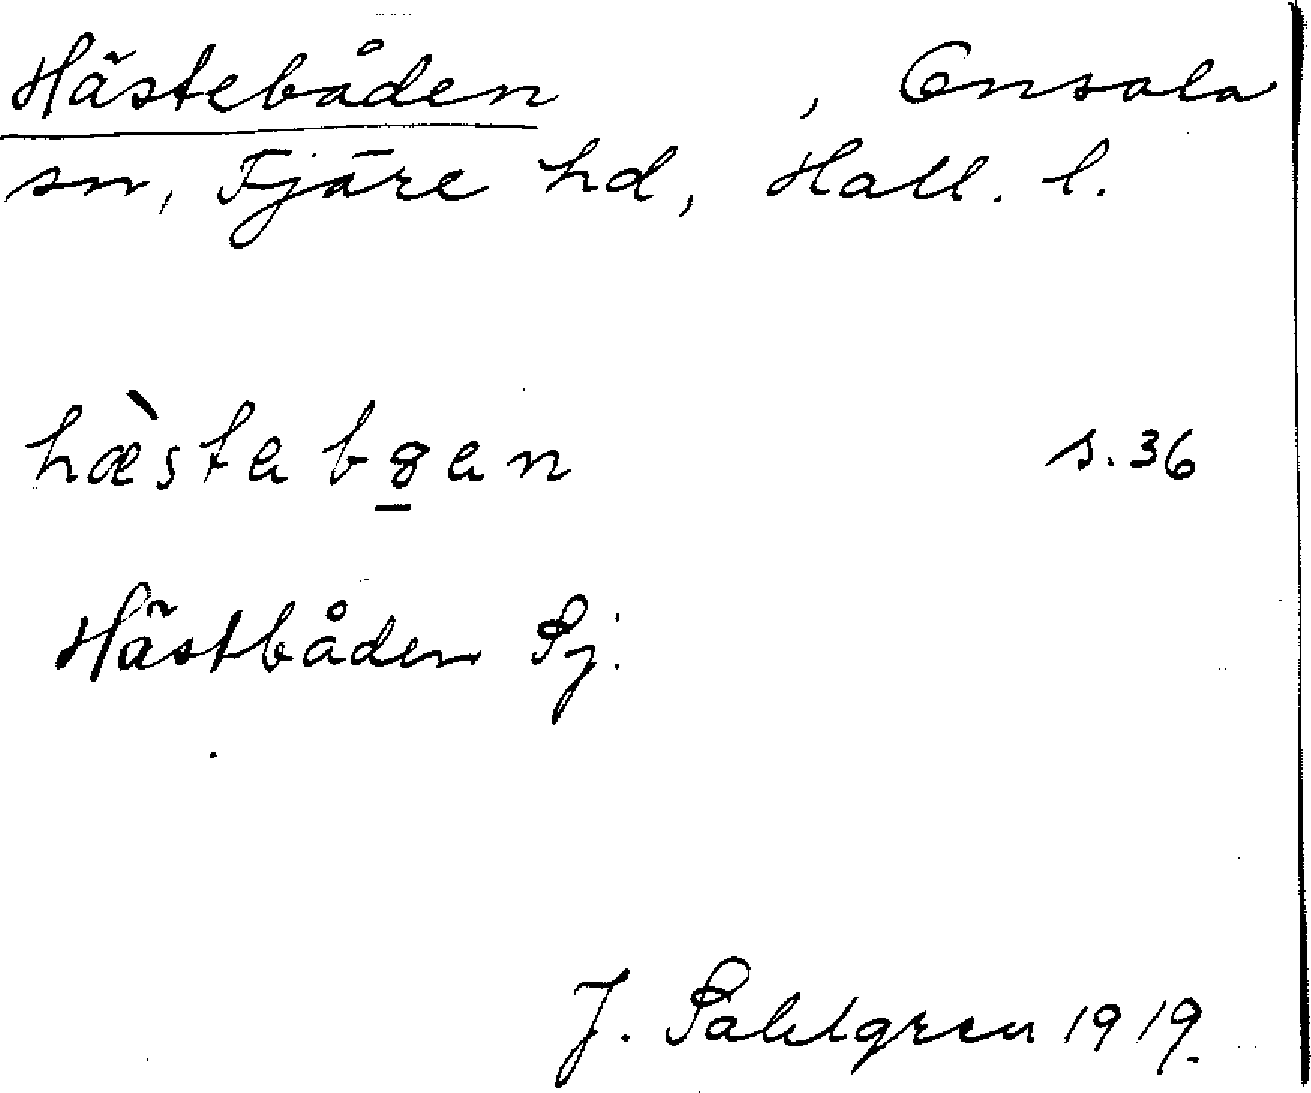 Hästebåden , Onsala
sn, Fjäre hd, Hall. l.
hæ̀stabȣ̱an s. 36
Hästbåden Sj.
J. Sahlgren 1919.